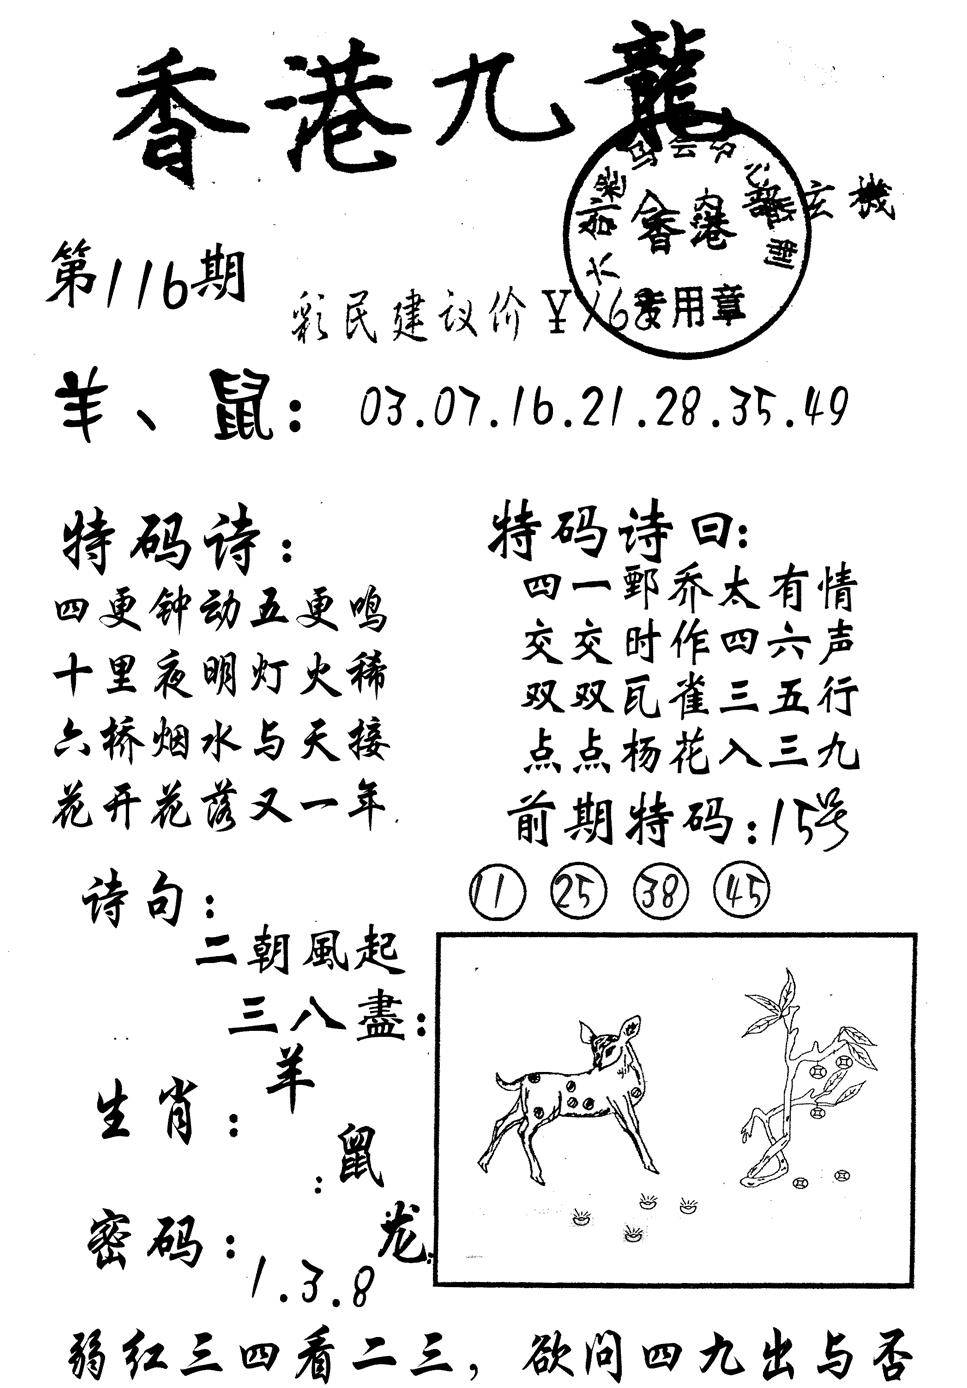 香港九龍
玄機
香港
专用章
第116期
彩民建议价￥168
羊、鼠：03.07.16.21.28.35.49
特码诗：
四更钟动五更鸣
十里夜明灯火稀
六桥烟水与天接
花开花落又一年
特码诗曰：
四一鄄乔太有情
交交时作四六声
双双瓦雀三五行
点点杨花入三九
前期特码：15号
11 25 38 45
诗句：
二朝風起
三八盡：
生肖：羊
鼠
龙
密码：1.3.8
弱红三四看二三，欲问四九出与否